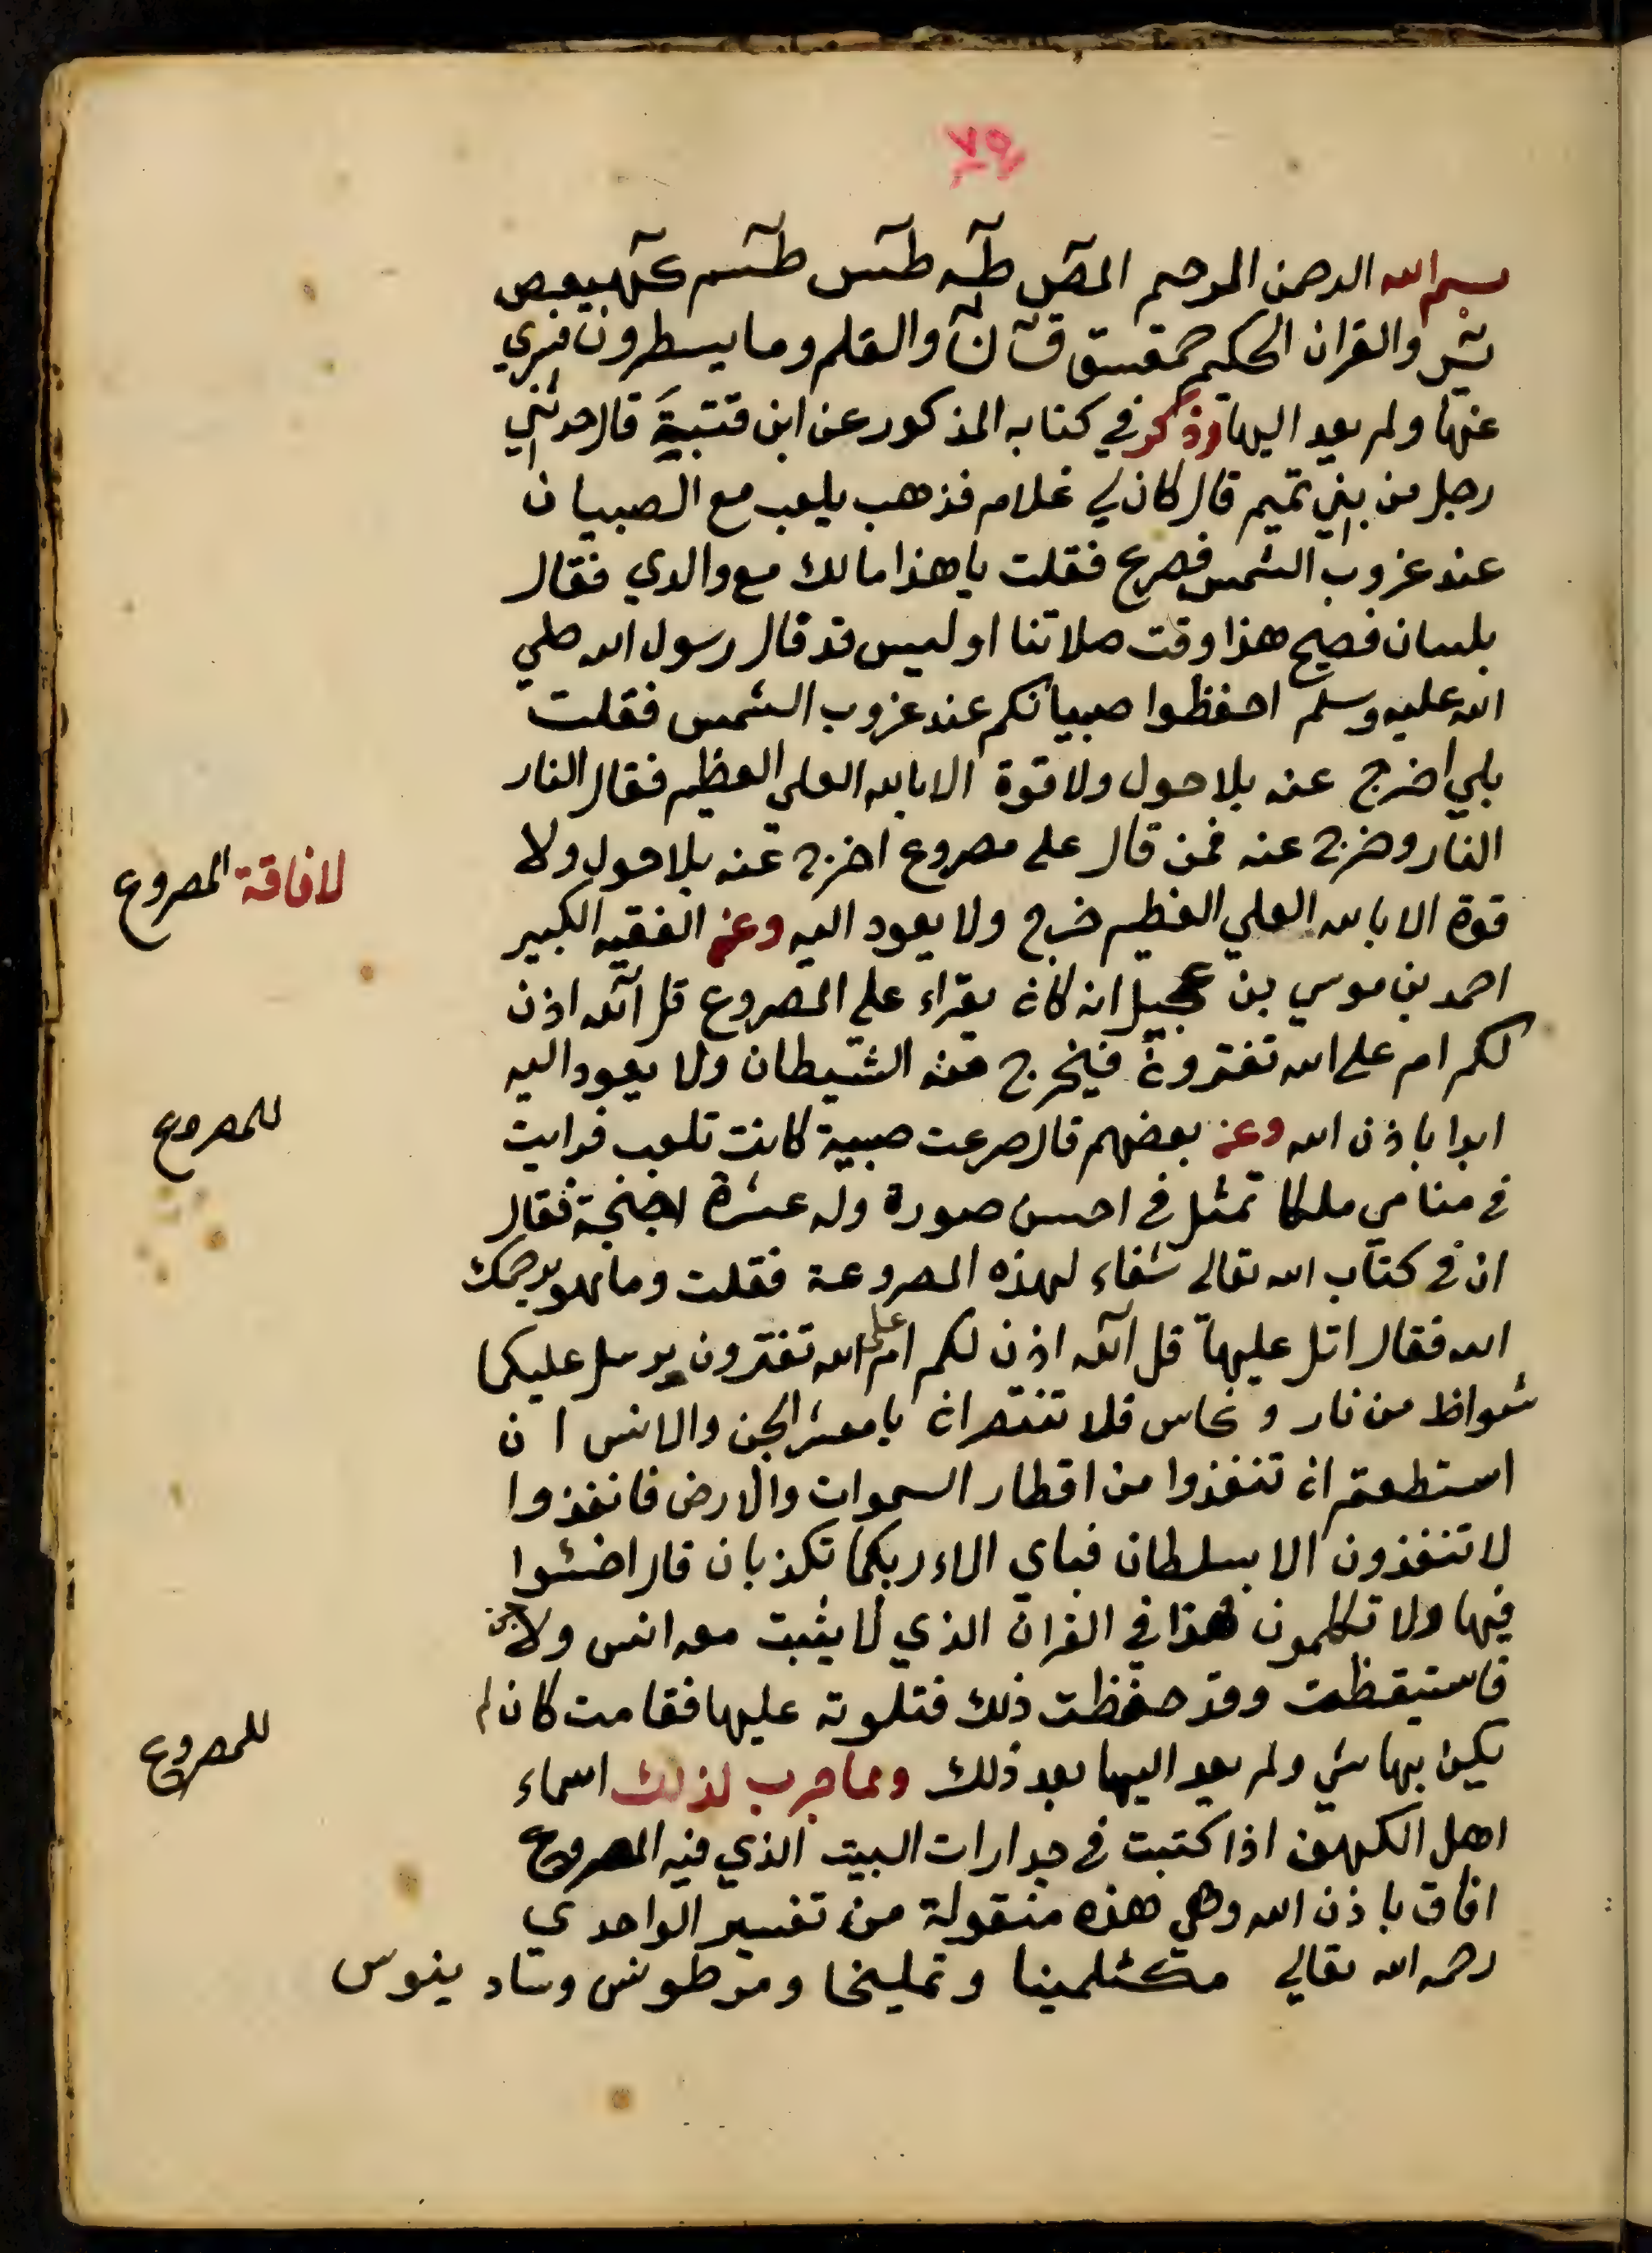 ٧٥
بسم الله الرحمن الرحيم المص طه طس طسم كهيعص
يس والقران الحكيم حمعسق ق ن والقلم وما يسطرون فبري
عنها ولم يعد اليها وذكر في كتابه المذكور عن ابن قتيبة قال حدثني
رجل من بني تميم قال كان لي غلام فذهب يلعب مع الصبيان
عند غروب الشمس فصرع فقلت يا هذا مالك مع والدي فقال
بلسان فصيح هذا وقت صلاتنا او ليس قد قال رسول الله صلي
الله عليه وسلم احفظوا صبيانكم عند غروب الشمس فقلت
بلي اخرج عنه بلا حول ولا قوة الا بالله العلي العظيم فقال النار
النار وخرج عنه فمن قال على مصروع اخرج عنه بلا حول ولا
لافاقة المصروع
قوة الا بالله العلي العظيم خرج ولا يعود اليه وعن الفقيه الكبير
احمد بن موسي بن عجيل انه كان يقراء علي المصروع قل آلله اذن
لكم ام على الله تفترون فيخرج منه الشيطان ولا يعود اليه
للمصروع
ابدا باذن الله وعن بعضهم قال صرعت صبية كانت تلعب فرايت
في منامي ملكا تمثل في احسن صورة وله عشرة اجنحة فقال
ان في كتاب الله تعالى شفاء لهذه المصروعة فقلت وما هو يرحمك
الله فقال اتل عليها قل آلله اذن لكم ام على الله تفترون يرسل عليكما
شواظ من نار ونحاس فلا تنتصران يا معشر الجن والانس ان
استطعتم ان تنفذوا من اقطار السموات والارض فانفذوا
لا تنفذون الا بسلطان فباي الاء ربكما تكذبان قال اخسئوا
فيها ولا تكلمون فهذا في القران الذي لا يثبت معه انس ولا جن
فاستيقظت وقد حفظت ذلك فتلوته عليها فقامت كان لم
يكن بها شي ولم يعد اليها بعد ذلك ومما جرب لذلك اسماء
للمصروع
اهل الكهف اذا كتبت في جدارات البيت الذي فيه المصروع
افاق باذن الله وهي هذه منقولة من تفسير الواحدي
رحمه الله تعالي مكثلمينا وتمليخا ومرطونس وساد ينوس